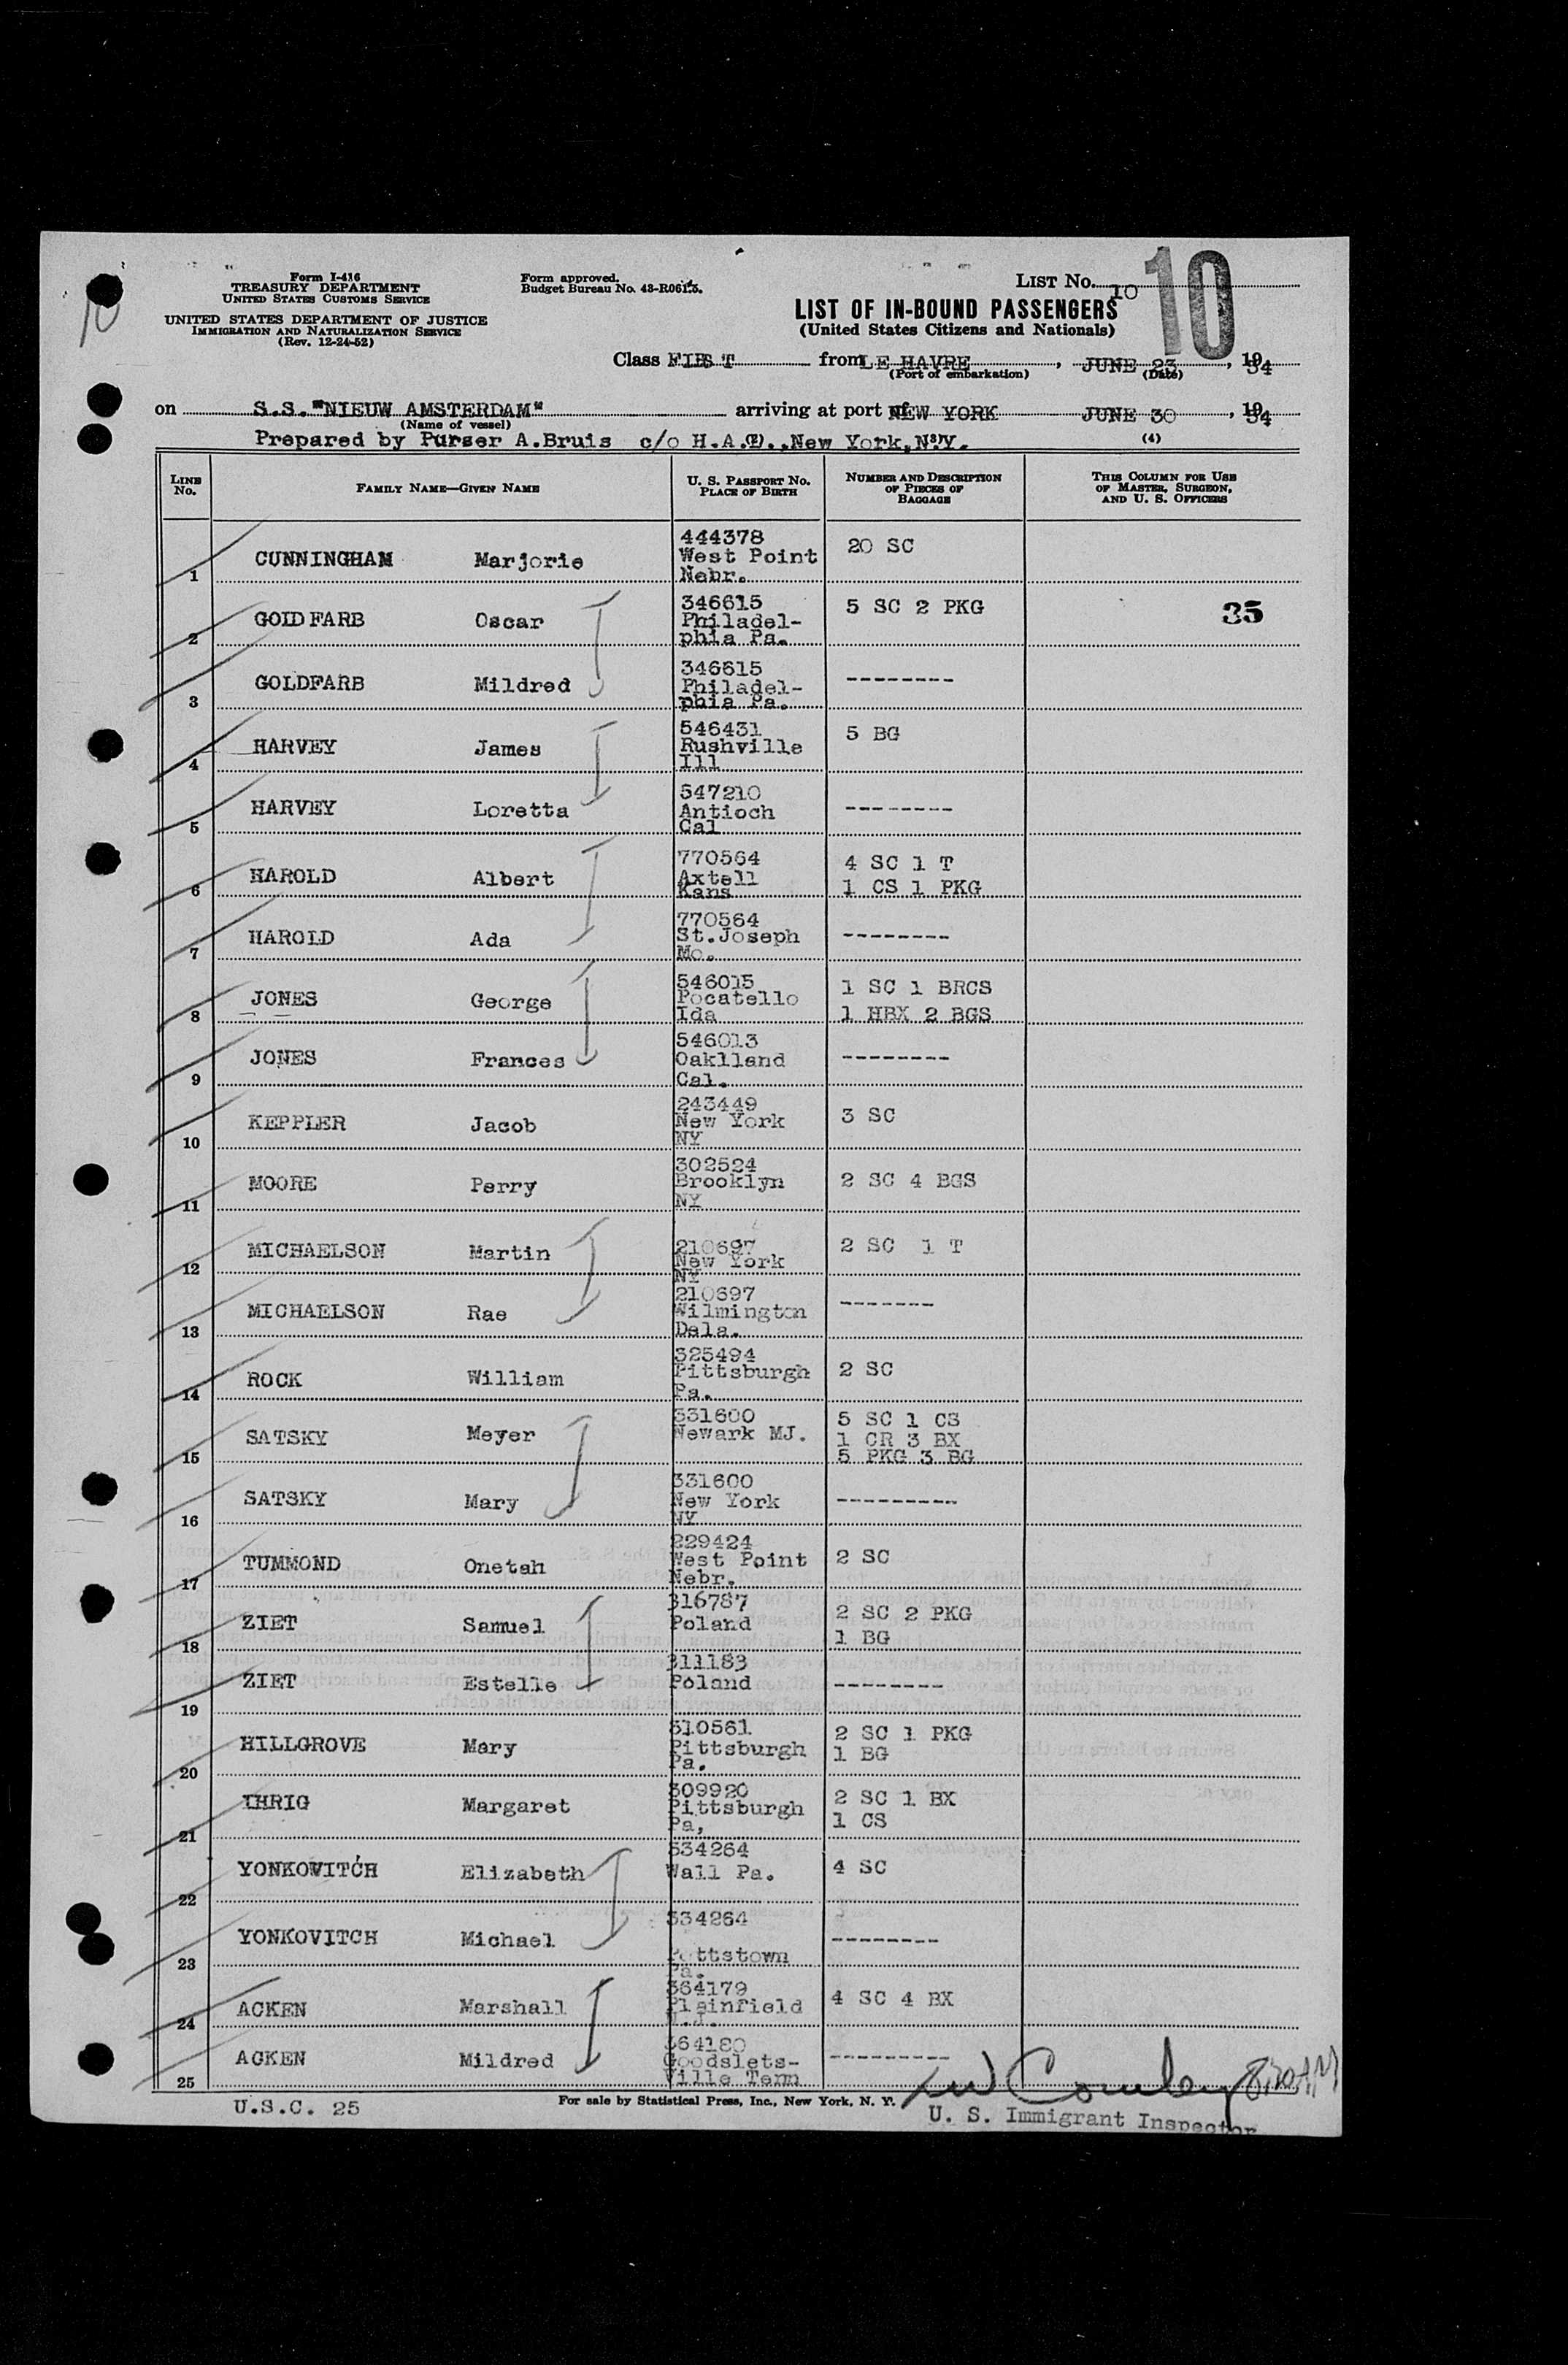 10
Form I-416
TREASURY DEPARTMENT
UNITED STATES CUSTOMS SERVICE
UNITED STATES DEPARTMENT OF JUSTICE
IMMIGRATION AND NATURALIZATION SERVICE
(Rev. 12-24-52)
Form approved.
Budget Bureau No. 43-R061.3.
LIST No. 10
10
LIST OF IN-BOUND PASSENGERS
(United States Citizens and Nationals)
Class FIRST from LE HAVRE, JUNE 23, 1954
(Port of embarkation) (Date)
on S.S."NIEUW AMSTERDAM" arriving at port of NEW YORK JUNE 30, 1954
(Name of vessel)
Prepared by Purser A.Bruis c/o H.A.L., New York, N.Y.
(4)
LINE No.
FAMILY NAME—GIVEN NAME
U. S. PASSPORT No.
PLACE OF BIRTH
NUMBER AND DESCRIPTION OF PIECES OF BAGGAGE
THIS COLUMN FOR USE OF MASTER, SURGEON, AND U. S. OFFICERS
1 CUNNINGHAM Marjorie 444378 West Point Nebr. 20 SC
2 GOLDFARB Oscar 346615 Philadel-phia Pa. 5 SC 2 PKG 35
3 GOLDFARB Mildred 346615 Philadel-phia Pa. --------
4 HARVEY James 546431 Rushville Ill 5 BG
5 HARVEY Loretta 547210 Antioch Cal --------
6 HAROLD Albert 770564 Axtell Kans 4 SC 1 T 1 CS 1 PKG
7 HAROLD Ada 770564 St.Joseph Mo. --------
8 JONES George 546015 Pocatello Ida 1 SC 1 BRCS 1 HBX 2 BGS
9 JONES Frances 546013 Oaklland Cal. --------
10 KEPPLER Jacob 243449 New York NY 3 SC
11 MOORE Perry 302524 Brooklyn NY 2 SC 4 BGS
12 MICHAELSON Martin 210697 New York NY 2 SC 1 T
13 MICHAELSON Rae 210697 Wilmington Dela. -------
14 ROCK William 325494 Pittsburgh Pa. 2 SC
15 SATSKY Meyer 331600 Newark MJ. 5 SC 1 CS 1 CR 3 BX 5 PKG 3 BG
16 SATSKY Mary 331600 New York NY ---------
17 TUMMOND Onetah 229424 West Point Nebr. 2 SC
18 ZIET Samuel 316787 Poland 2 SC 2 PKG 1 BG
19 ZIET Estelle 311183 Poland --------
20 HILLGROVE Mary 310561 Pittsburgh Pa. 2 SC 1 PKG 1 BG
21 IHRIG Margaret 309920 Pittsburgh Pa, 2 SC 1 BX 1 CS
22 YONKOVITCH Elizabeth 334264 Wall Pa. 4 SC
23 YONKOVITCH Michael 334264 Pottstown Pa. --------
24 ACKEN Marshall 364179 Plainfield N.J. 4 SC 4 BX
25 ACKEN Mildred 364180 Goodslets-ville Tenn ---------
U.S.C. 25
For sale by Statistical Press, Inc., New York, N. Y.
U. S. Immigrant Inspector